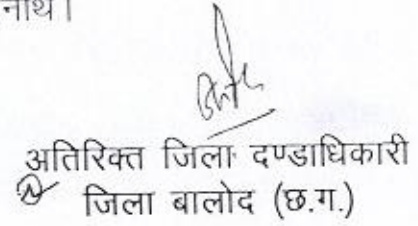 नाथ।
अतिरिक्त जिला दण्डाधिकारी
जिला बालोद (छ.ग.)